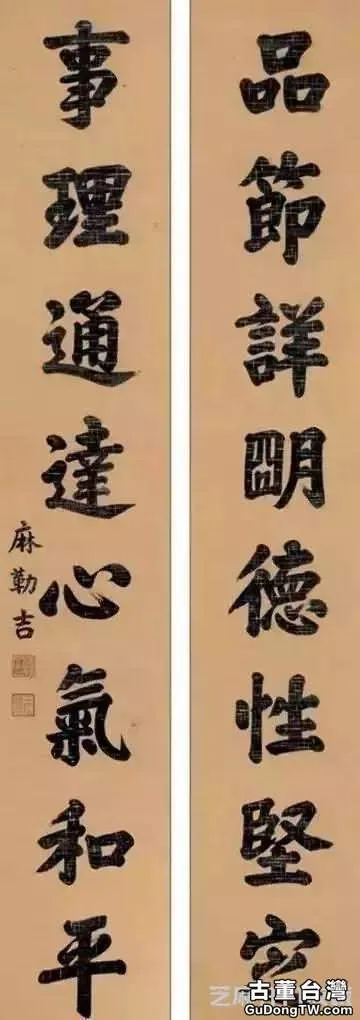 品節詳明德性堅定
事理通達心氣和平
麻勒吉
芝麻
古董台灣
GuDongTW.com